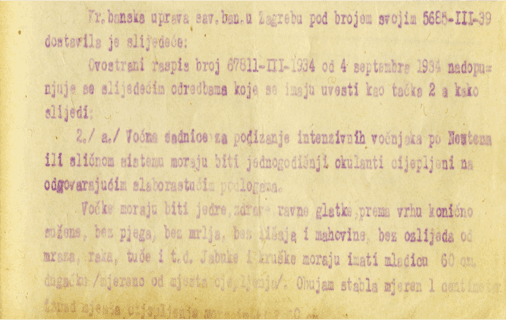 Kr. banska uprava sav.ban.u Zagrebu pod brojem svojim 5685-III-39
dostavila je slijedeće:
Ovostrani raspis broj 67811-III-1934 od 4 septembra 1934 nadopu-
njuje se slijedećim odredbama koje se imaju uvesti kao tačka 2 a kako
slijedi:
2./ a./ Voćne sadnice za podizanje intenzivnih voćnjaka po
ili sličnom sistemu moraju biti jednogodišnji okulanti cijepljeni na
odgovarajućim slaborastućim podlogama.
Voćke moraju biti jedre, zdrave ravne glatke, prema vrhu konično
sužene, bez pjega, bez mrlja, bez lišaja i mahovine, bez ozlijeda od
mraza, raza, tuče i t.d. Jabuke i kruške moraju imati mladicu 60 cm.
dugačku /mjereno od mjesta cijepljenja/. Obujam stabla mjeren 1 centimetar
iznad mjesta cijepljenja